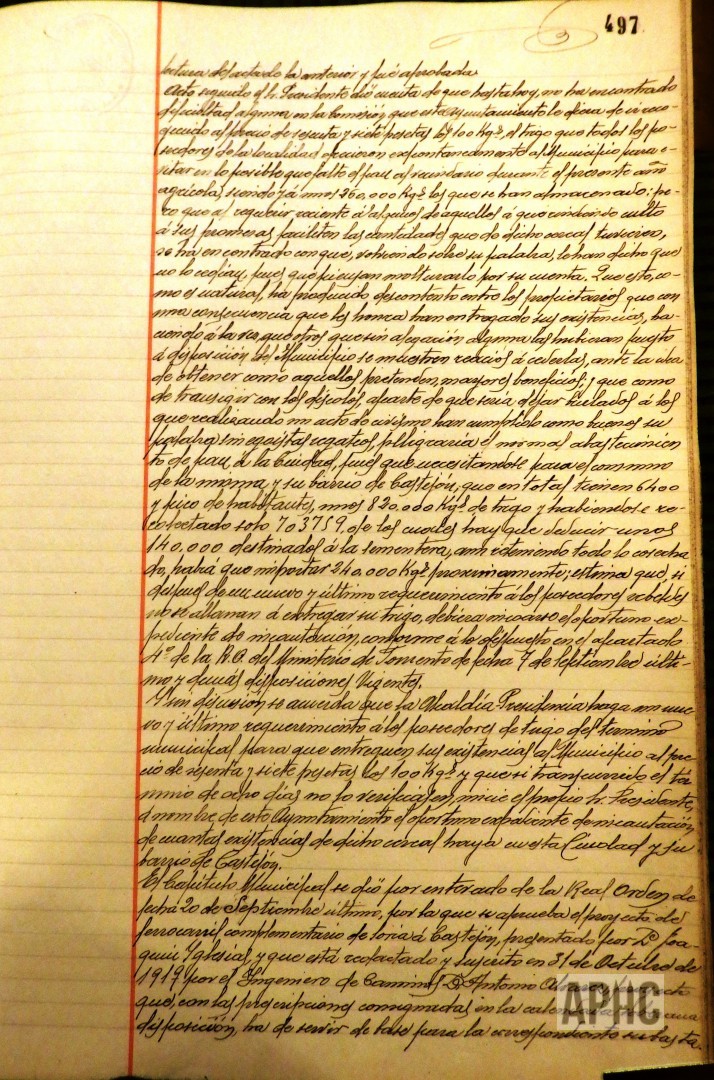 497
lectura del acta de la anterior y fué aprobada.
Acto seguido el Sr. Presidente dió cuenta de que hasta hoy, no ha encontrado
dificultad alguna en la comisión que este Ayuntamiento le diera de ir reco-
giendo al precio de sesenta y siete pesetas los 100 Kgs., el trigo que todos los po-
seedores de la localidad ofrecieron expontaneamente al Municipio para e-
vitar en lo posible que falte el pan al vecindario durante el presente año
agrícola, siendo yá unos 260,000 Kgs. los que se han almacenado; pe-
ro que al requerir reciente á algunos de aquellos á que rindiendo culto
á sus promesas faciliten las cantidades que de dicho cereal tuvieren,
se ha encontrado con que, volviendo sobre su palabra, le han dicho que
no lo cedian, pues que piensan molturarlo por su cuenta. Que esto, co-
mo es natural, ha producido descontento entre los propietarios que con
una consecuencia que les honra han entregado sus existencias, ha-
ciendo á la vez que otros que sin alegación alguna las hubieran puesto
á disposición del Municipio se muestren reacios á cederlas, ante la idea
de obtener como aquellos pretenden, mayores beneficios; y que como
de transigir con los díscolos, aparte de que seria dejar burlados á los
que realizando un acto de civismo han cumplido como buenos su
palabra sin egoistas regateos, peligraria el normal abastecimien-
to de pan á la Ciudad, pues que necesitandose para el consumo
de la misma y su barrio de Castejón, que en total tienen 6400
y pico de habitantes, unos 820.000 Kgs. de trigo y habiendose re-
colectado solo 703759 de los cuales hay que deducir unos
140,000 destinados á la sementera, aun reteniendo todo lo cosecha-
do, habrá que importar 240.000 Kgs. proximamente; estima que, si
despues de un nuevo y último requerimiento á los poseedores rebeldes
no se allanan á entregar su trigo, debiera incoarse el oportuno ex-
pediente de incautación, conforme á lo dispuesto en el apartado
4º de la R.O. del Ministerio de Fomento de fecha 7 de Septiembre últi-
mo y demás disposiciones vigentes.
Y sin discusión se acuerda que la Alcaldía-Presidencia haga un nue-
vo y último requerimiento á los poseedores de trigo del termino
municipal para que entreguen sus existencias al Municipio al pre-
cio de sesenta y siete pesetas los 100 Kgs. y que si transcurrido el tér-
mino de ocho días no lo verificasen, inicie el propio Sr. Presidente,
á nombre de este Ayuntamiento el oportuno expediente de incautación
de cuantas existencias de dicho cereal haya en esta Ciudad y su
barrio de Castejón.
El Capítulo Municipal se dió por enterado de la Real Orden de
fecha 20 de Septiembre último, por la que se aprueba el proyecto de
ferrocarril complementario de Soria á Castejón, presentado por D. Joa-
quin Yglesias, y que está redactado y suscrito en 31 de Octubre de
1917 por el Ingeniero de Caminos D. Antonio
que, con las prescripciones consignadas en la
disposición, ha de servir de base para la correspondiente subasta.
APHC